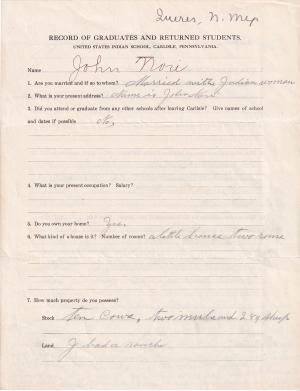 Queres, N. Mex
RECORD OF GRADUATES AND RETURNED STUDENTS.
UNITED STATES INDIAN SCHOOL, CARLISLE, PENNSYLVANIA.
Name John Nori
1. Are you married and if so to whom? Married with Indian woman
2. What is your present address? Name is John Nori
3. Did you attend or graduate from any other schools after leaving Carlisle? Give names of school
and dates if possible No,
4. What is your present occupation? Salary?
5. Do you own your home? Yes.
6. What kind of a house is it? Number of rooms? a little house two rooms
7. How much property do you possess?
Stock ten Cows, two muels and 284 sheep
Land I had a ranch